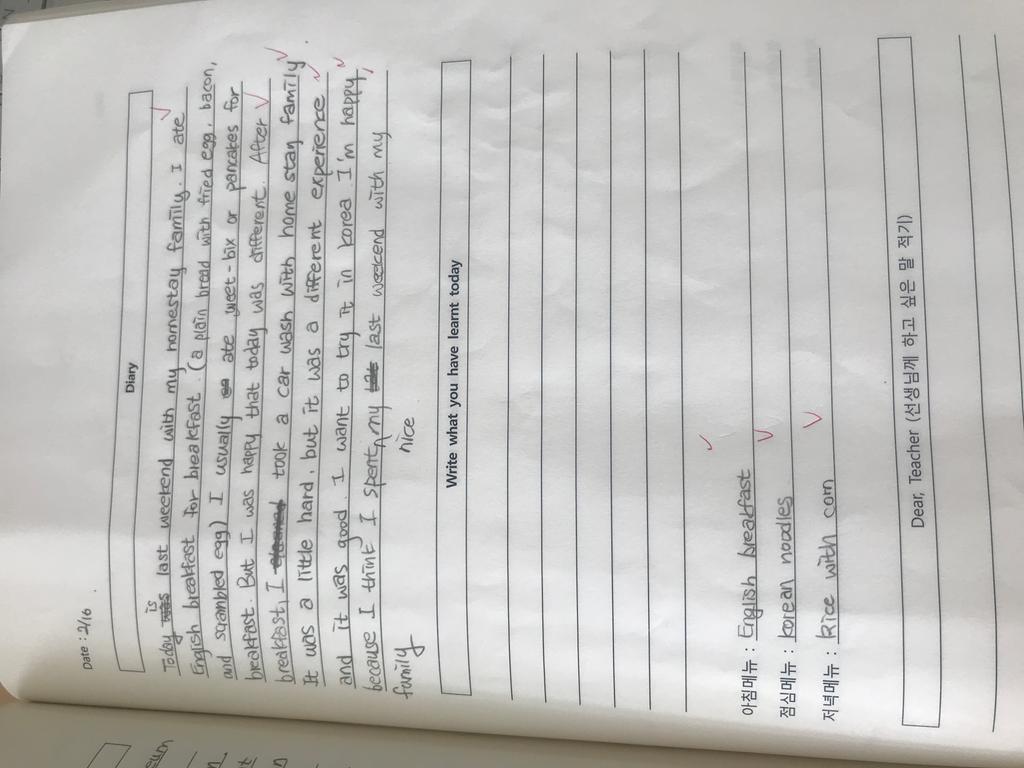 Date : 2/16
Diary
is
Today was last weekend with my homestay family. I ate
English breakfast for breakfast. (a plain bread with fried egg, bacon,
and scrambled egg) I usually ate weet-bix or pancakes for
breakfast. But I was happy that today was different. After
breakfast, I cleaned took a car wash with home stay family.
It was a little hard, but it was a different experience
and it was good. I want to try it in korea. I'm happy,
because I think I spent my last weekend with my
nice
family
Write what you have learnt today
아침메뉴 : English breakfast
점심메뉴 : korean noodles
저녁메뉴 : Rice with corn
Dear, Teacher (선생님께 하고 싶은 말 적기)